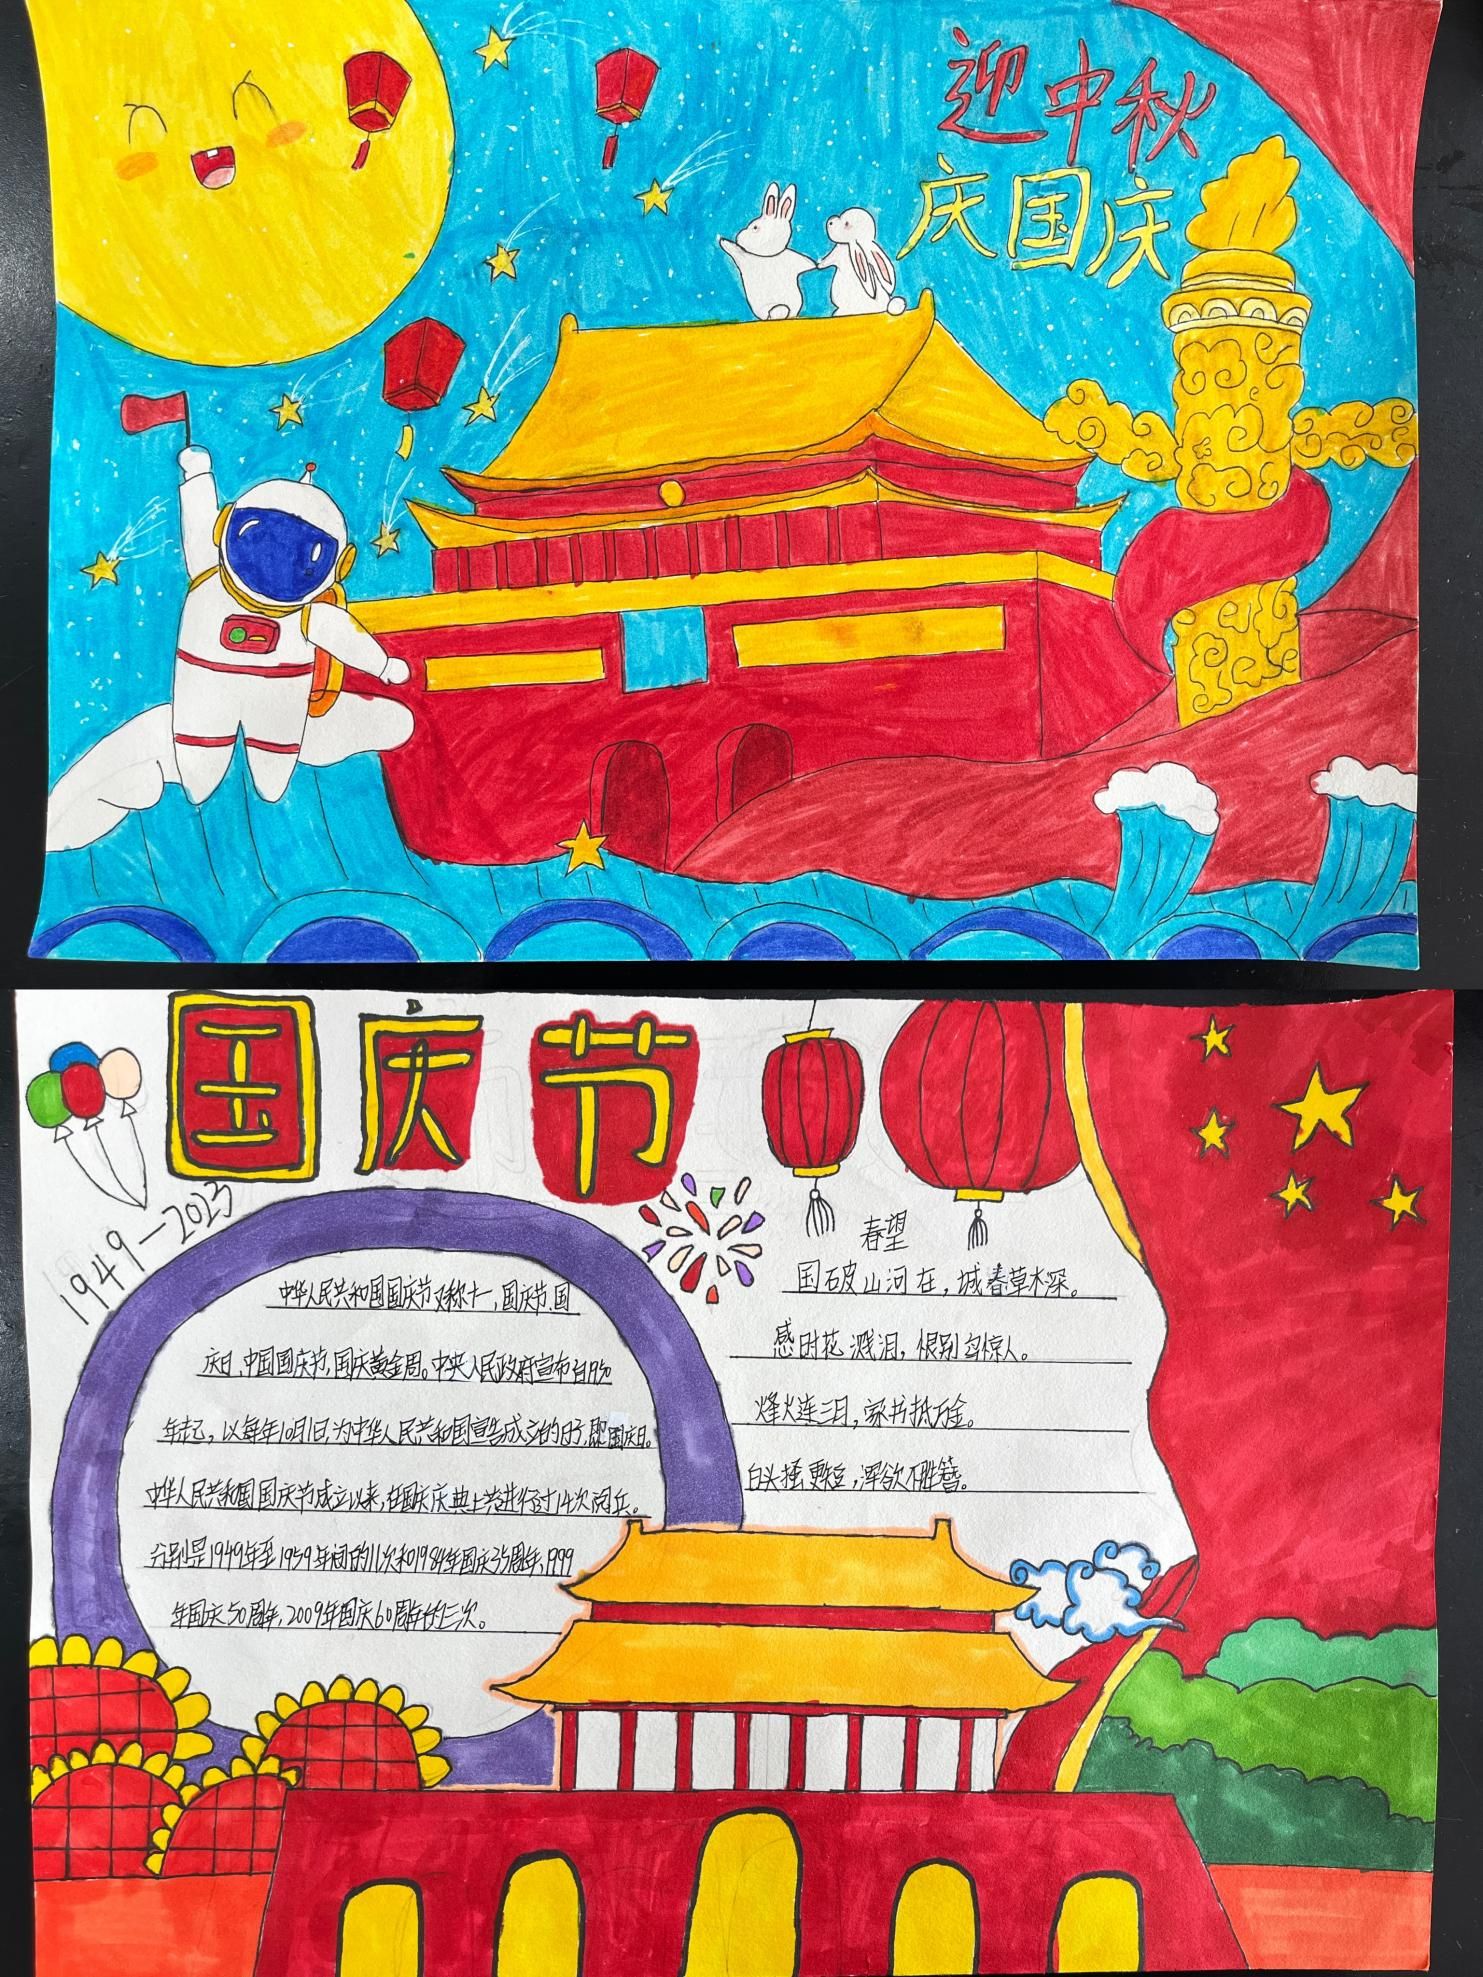 迎中秋
庆国庆
国庆节
1949-2023
中华人民共和国国庆节又称十一,国庆节、国
庆日、中国国庆节,国庆黄金周。中央人民政府宣布自1950
年起,以每年10月1日,为中华人民共和国宣告成立的日子,即国庆日。
中华人民共和国国庆节成立以来,在国庆庆典上共进行过14次阅兵。
分别是1949年至1959年间的11次和1984年国庆35周年、1999
年国庆50周年,2009年国庆60周年的三次。
春望
国破山河在,城春草木深。
感时花溅泪,恨别鸟惊人。
烽火连三日,家书抵万金。
白头搔更短,浑欲不胜簪。